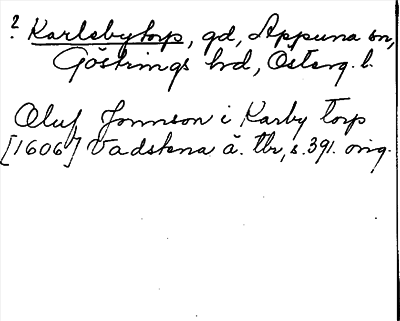 ? Karlsbytorp, gd, Appuna sn,
Göstrings hd, Österg. l.
Oluf Jonnson i Karby torp
[1606] Vadstena ä. tbr, s. 391. orig.